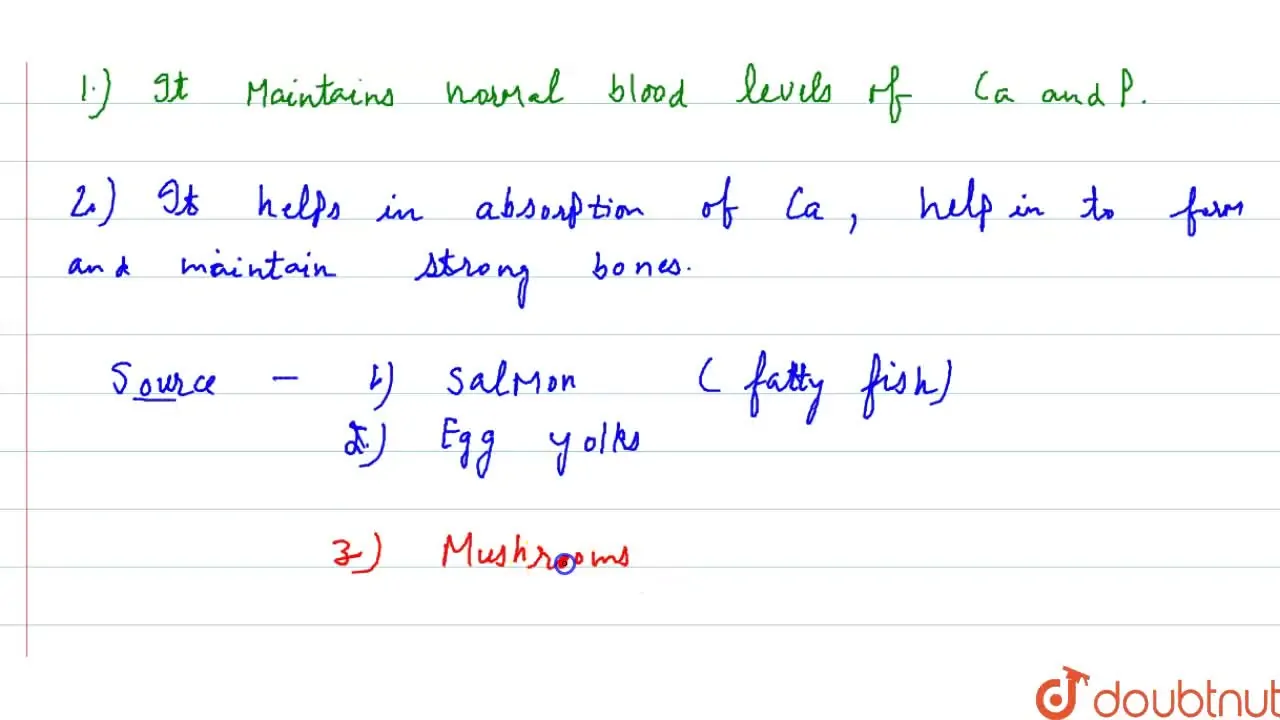 1.) It Maintains normal blood levels of Ca and P.
2.) It helps in absorption of Ca, help in to form
and maintain strong bones.
Source - 1) Salmon (fatty fish)
2.) Egg yolks
3.) Mushrooms
doubtnut